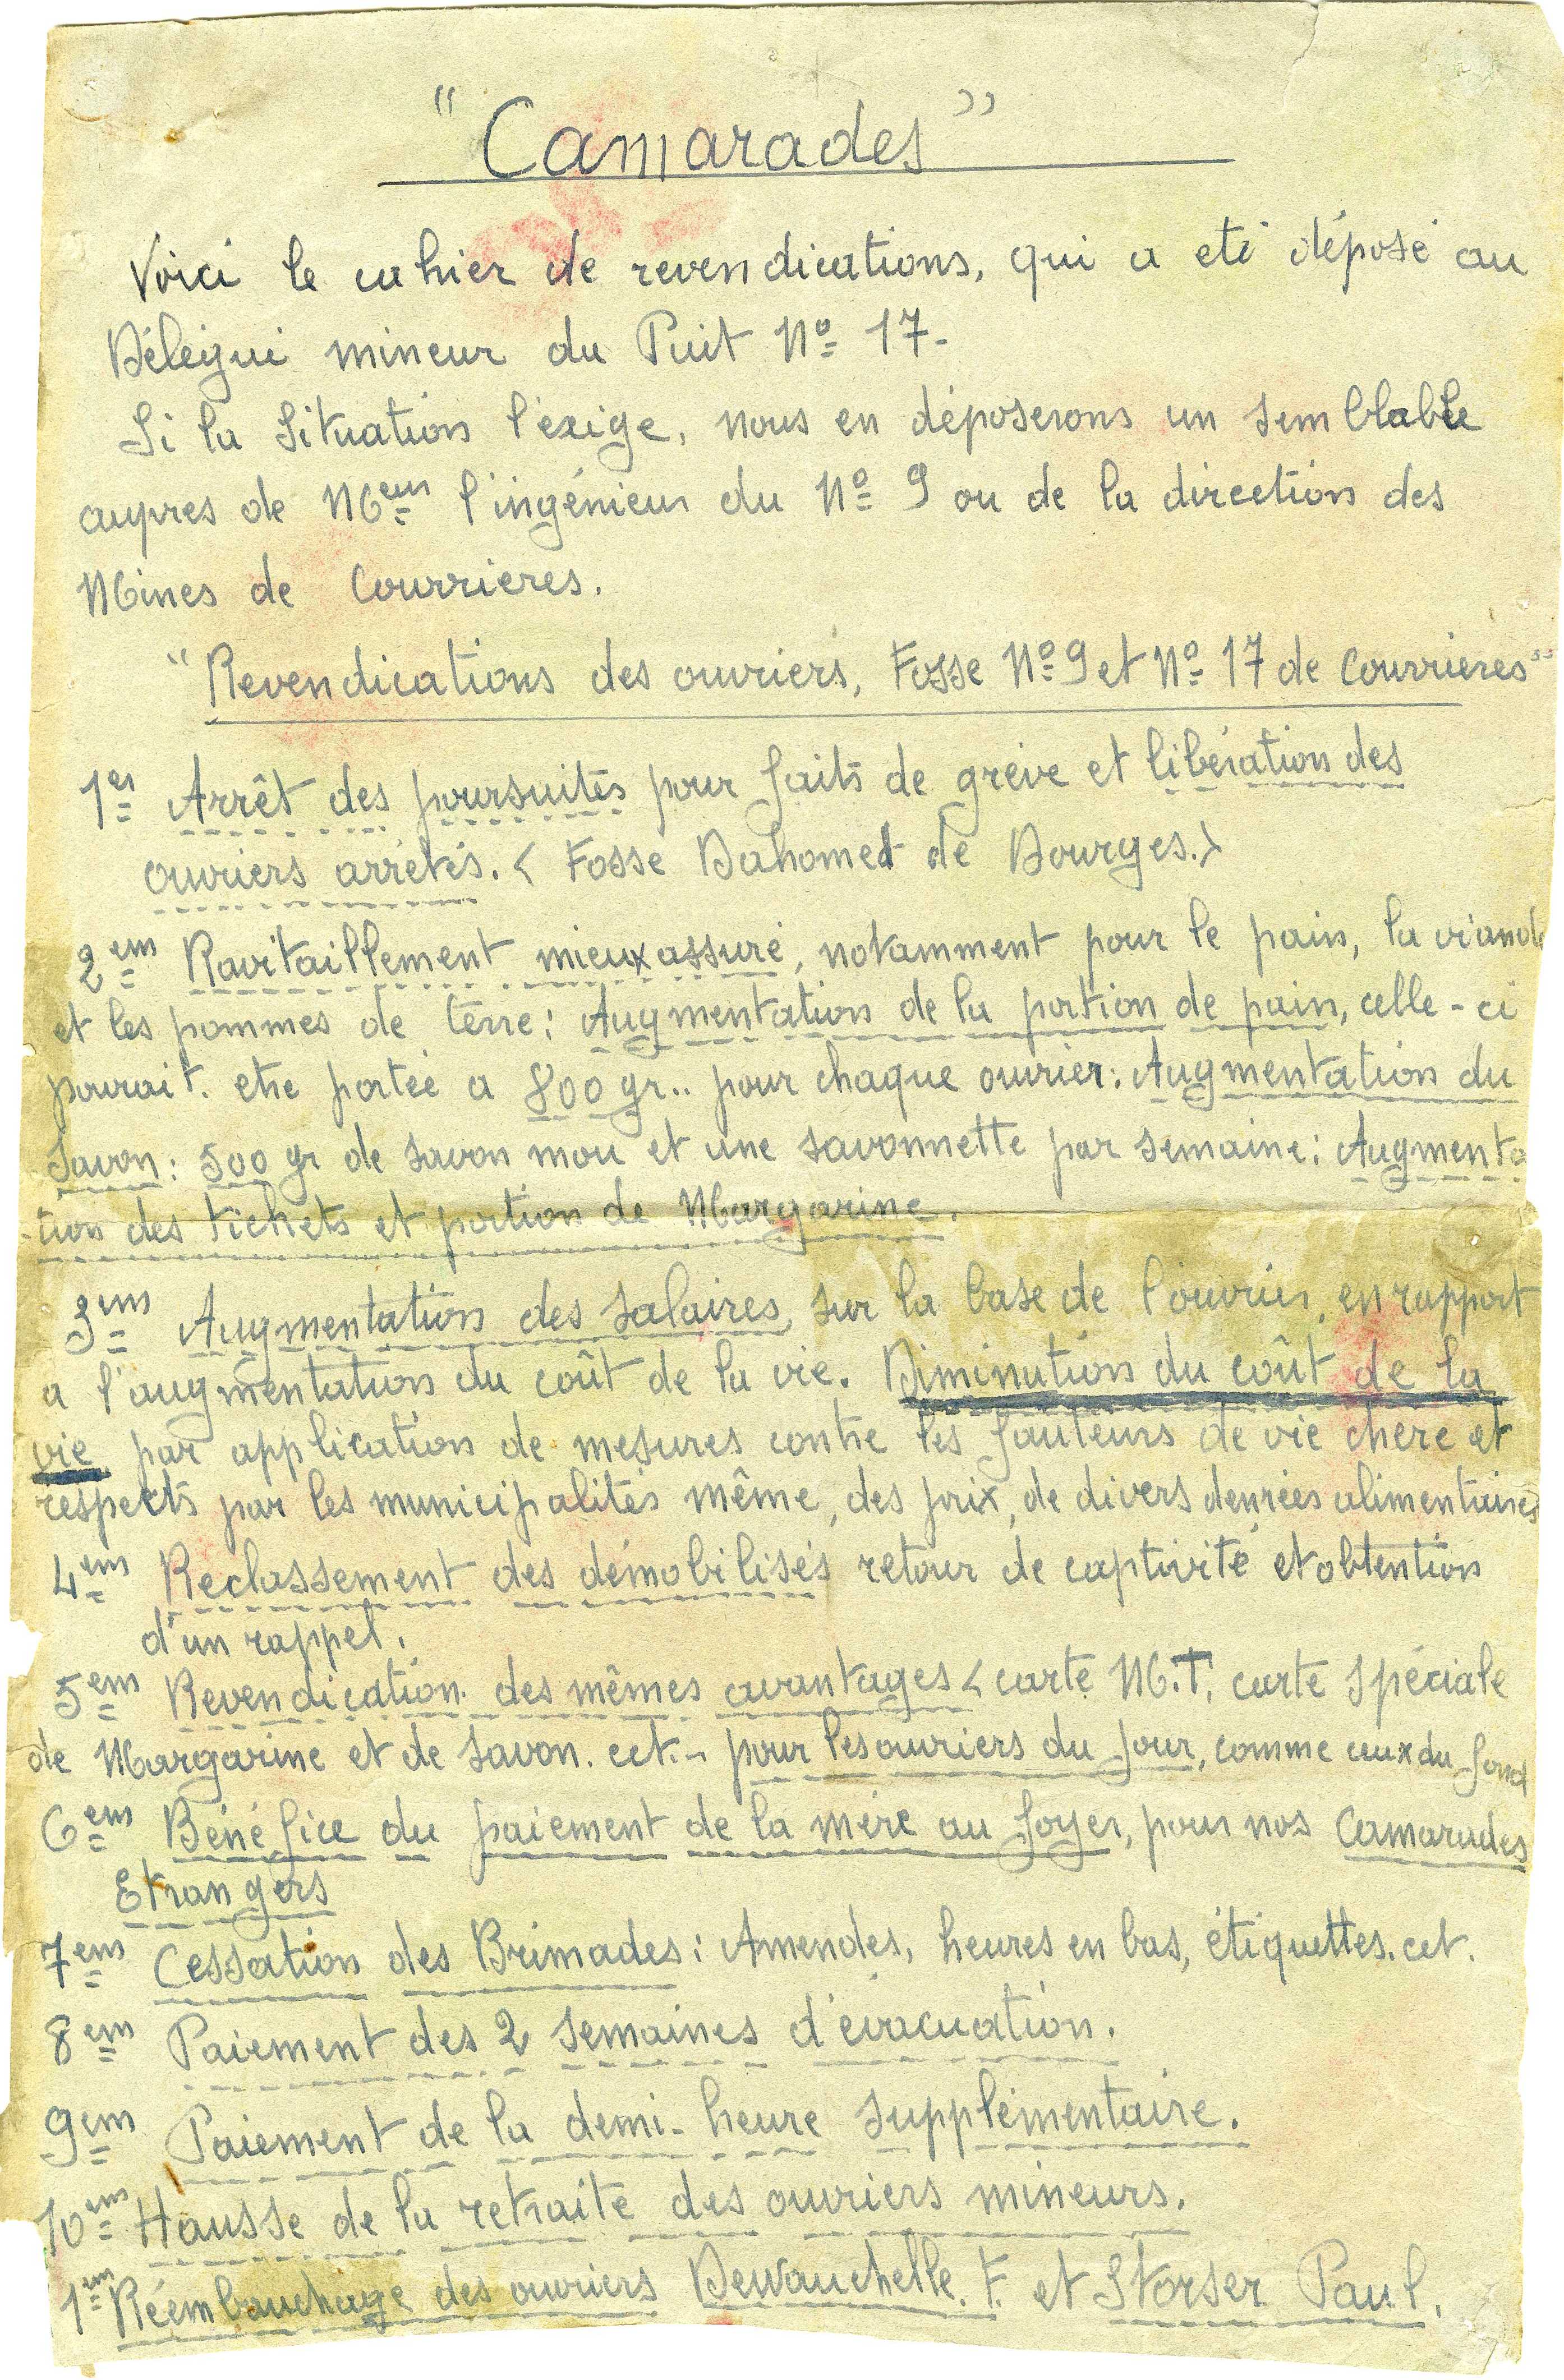 "Camarades"
Voici le cahier de revendications, qui a eté déposé au
Délégué mineur du Puit No 17-
Si la Situation l'éxige, nous en déposerons un semblable
aupres de Meur l'ingénieur du No 9 ou de la direction des
Mines de Courrieres.
"Revendications des ouvriers, Fosse No 9 et No 17 de Courrieres"
1er Arrêt des poursuites pour faits de greve et libération des
ouvriers arrétés. < Fosse Dahomet de Dourges. >
2em Ravitaillement mieux assuré, notamment pour le pain, la viande
et les pommes de terre: Augmentation de la portion de pain, celle-ci
pourait. etre portée a 800 gr.. pour chaque ouvrier: Augmentation du
Savon: 500 gr de savon mou et une savonnette par semaine: Augmenta
-tion des tickets et portion de Margarine.
3em Augmentation des salaires, sur la base de l'ouvrier, en rapport
a l'augmentation du coût de la vie. Diminution du coût de la
vie par application de mesures contre les fauteurs de vie chere et
respects par les municipalités même, des prix, de divers denrées alimentaires
4em Reclassement des démobilisés retour de captivité et obtention
d'un rappel.
5em Revendication des mêmes avantages < carte M.T. carte Spéciale
de Margarine et de savon. ect.- pour les ouvriers du Jour, comme ceux du fond
6em Bénéfice du paiement de la mére au foyer, pour nos Camarades
Etrangers
7em Cessation des Brimades: Amendes, heures en bas, étiquettes. cet.
8em Paiement des 2 semaines d'évacuation.
9em Paiement de la demi-heure supplémentaire.
10em Hausse de la retraite des ouvriers mineurs.
1em Réembauchage des ouvriers Devauchelle. F. et Storser Paul.